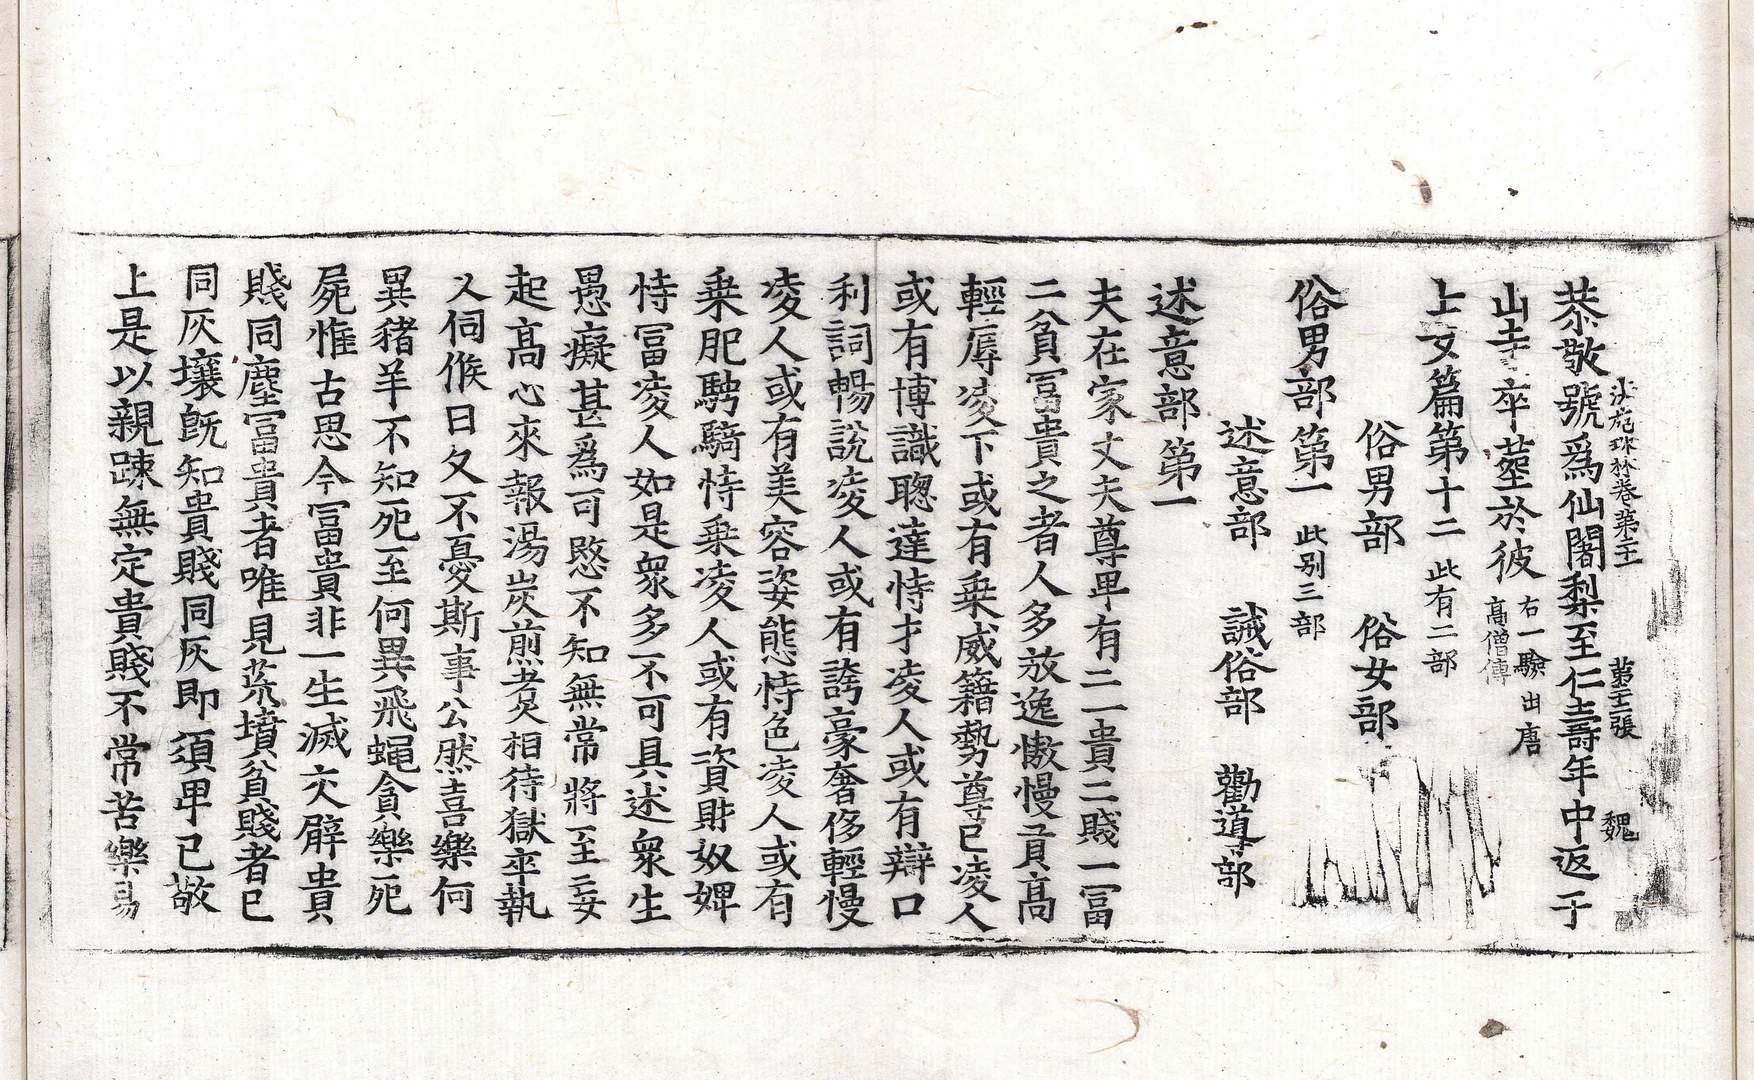 恭敬號爲仙闍梨至仁壽年中返于
法苑珠林卷第二十一 第二十二張 魏
山寺卒葬於彼 右一驗出唐高僧傳
士女篇第十二 此有二部
俗男部 俗女部
俗男部第一 此別三部
述意部 誡俗部 勸導部
述意部第一
夫在家丈夫尊卑有二一貴二賤一冨
二貧冨貴之者人多放逸慠慢貢高
輕辱凌下或有乗威籍勢尊己凌人
或有博識聰達恃才凌人或有辯口
利詞暢說凌人或有誇豪奢侈輕慢
凌人或有美容姿態恃色凌人或有
乗肥騁騎恃乗凌人或有資財奴婢
恃冨凌人如是衆多不可具述衆生
愚癡甚爲可愍不知無常將至妄
起高心來報湯炭煎煑相待獄卒執
叉伺候日久不憂斯事公然喜樂何
異猪羊不知死至何異飛蠅貪樂死
屍惟古思今冨貴非一生滅交臂貴
賤同塵冨貴者唯見荒墳貧賤者已
同灰壤旣知貴賤同灰即須卑己敬
上是以親踈無定貴賤不常苦樂易